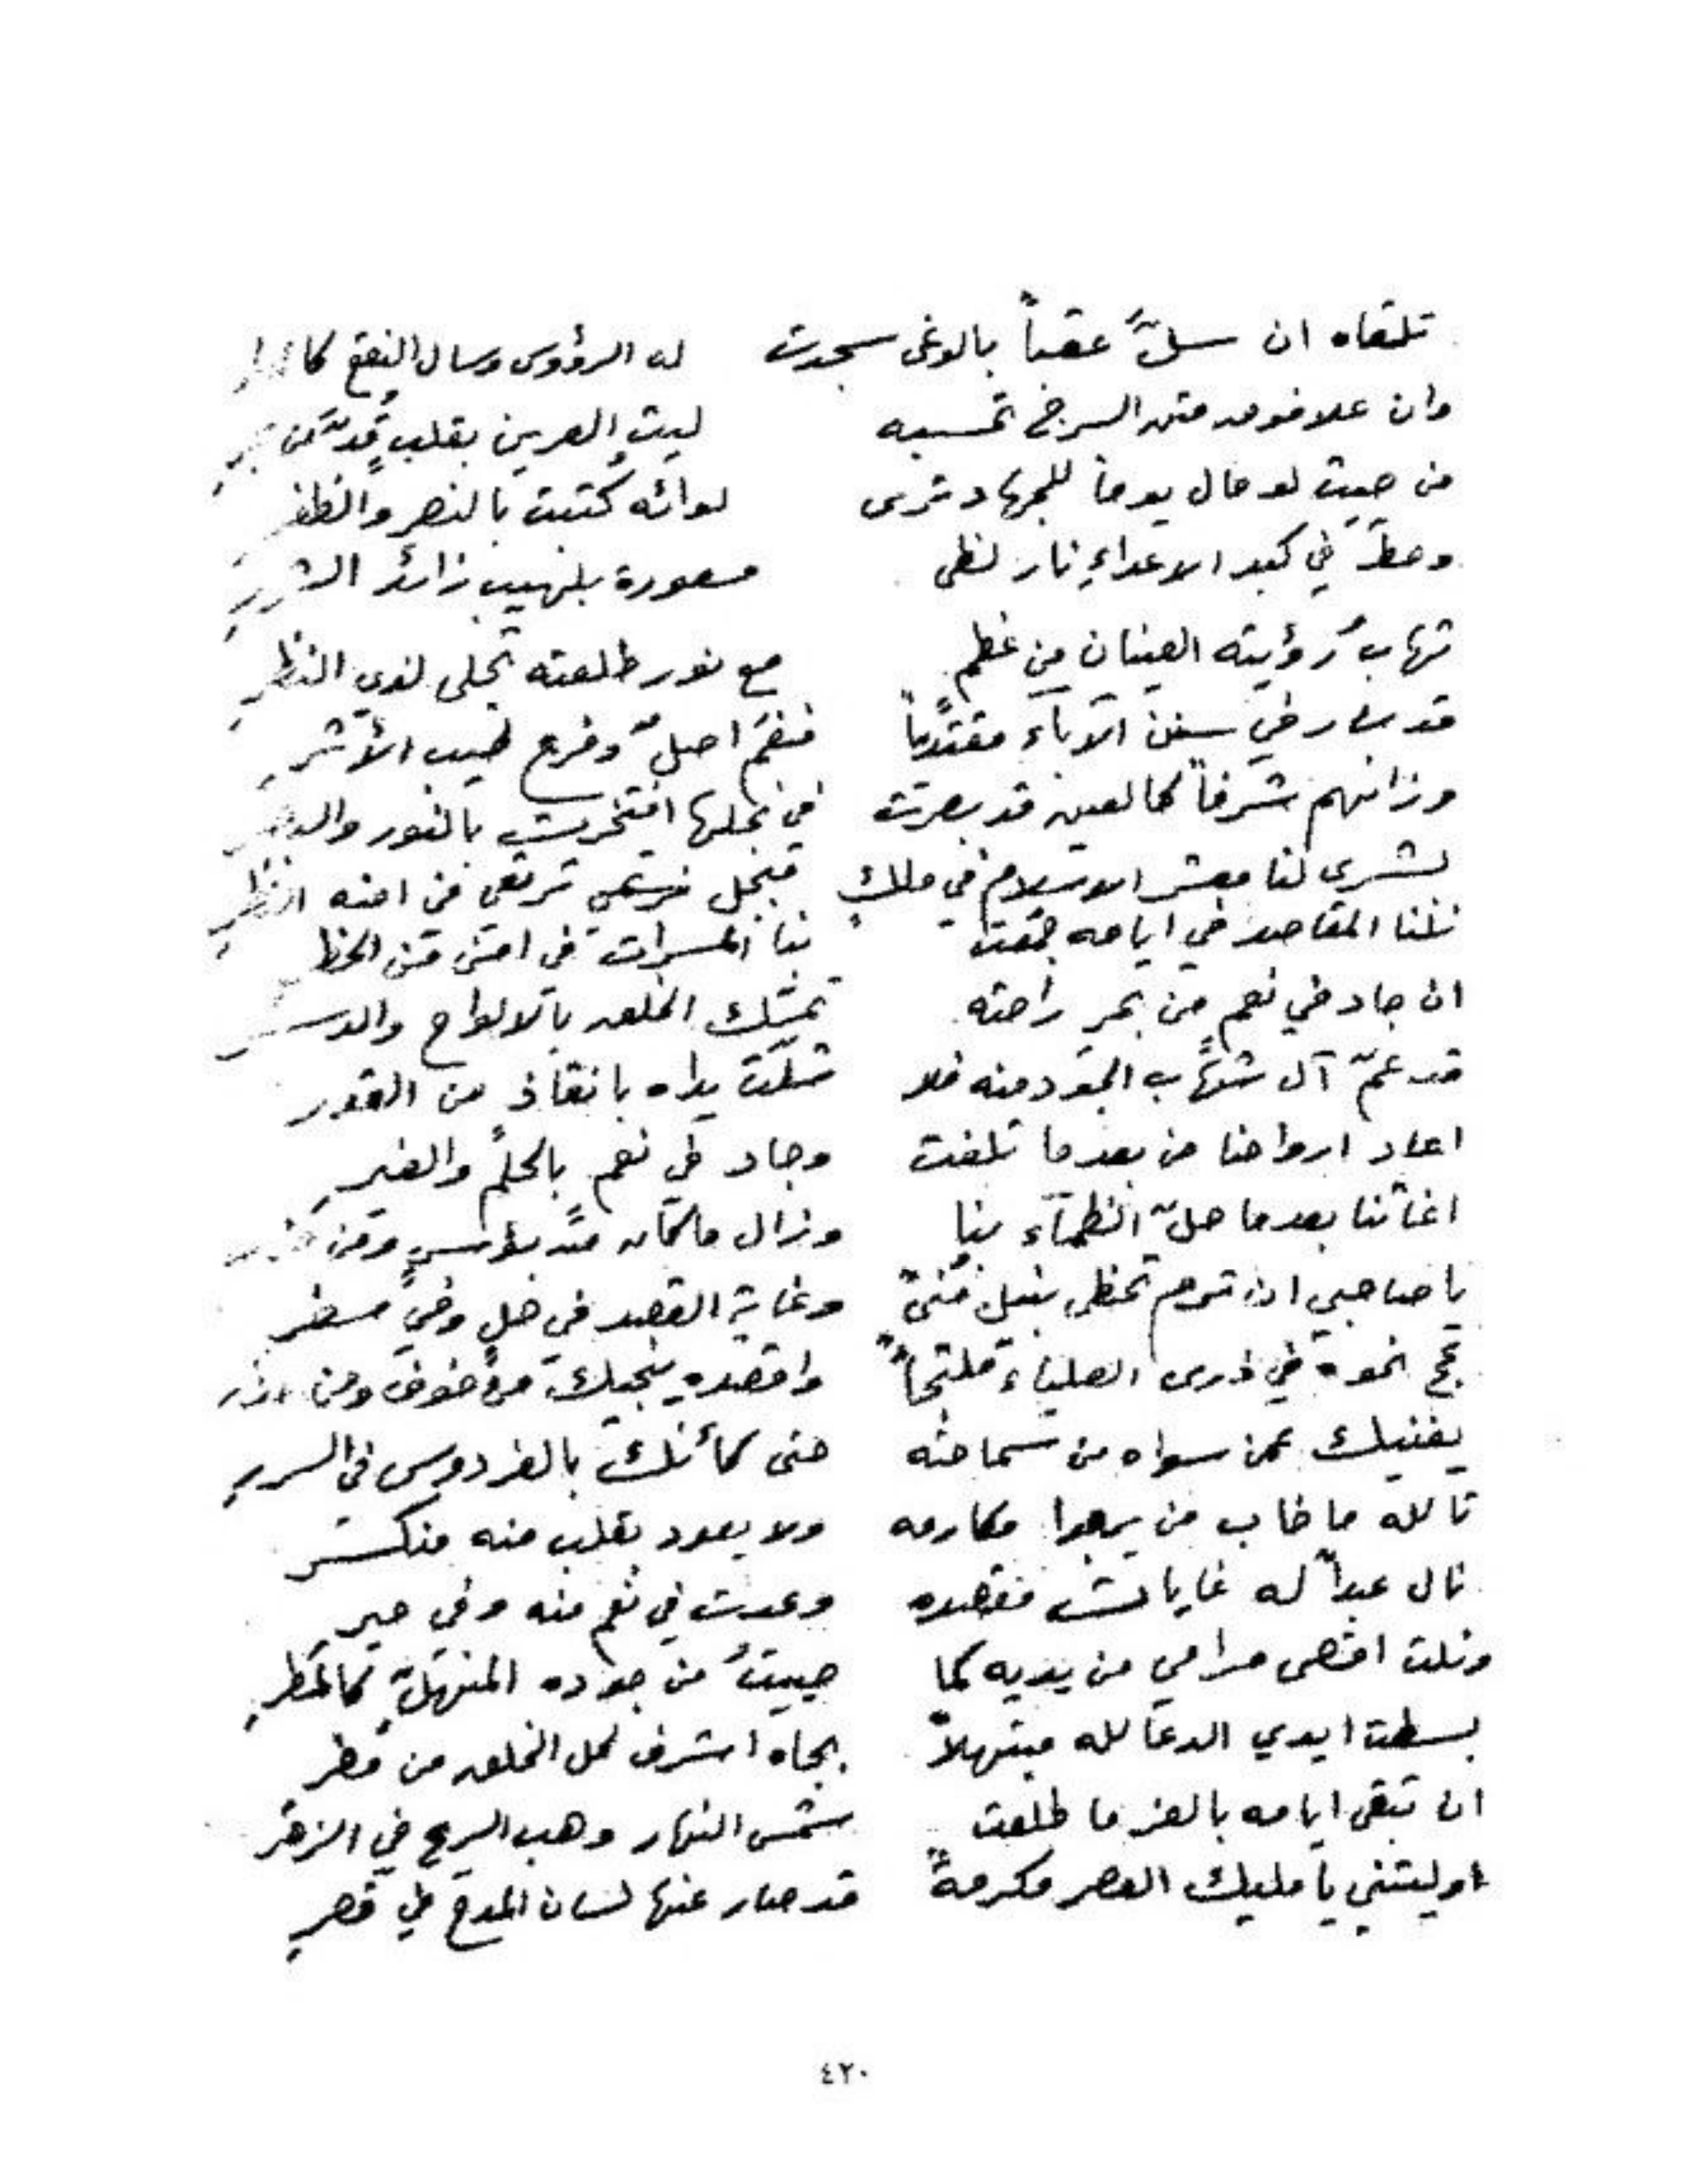 تلقاه ان سلّ عضباً بالوغى سجدت له الرؤوس وسال النقع
وان علا فوق متن السرج تحسبه ليث العرين بقلب قدّ من
من حيث لو مال يوماً للجهاد ترى لوائه كتبت بالنصر والظفر
وحطّ في كبد الاعداءِ نار لظى مسعورة بلهيب زائد الشررِ
تهاب رؤيته العينان من عظم مع نور طلعته تجلى لذي النظرِ
قد سار في سنن الآباء مقتدياً فنعم اصلّ وفرع طيب الأثر
وزانهم شرفاً كالعين قد بصرت في نجلها افتخرت بالنور والبصر
بشرى لنا معشر الاسلام في ملكٍ
نلنا المقاصد في ايامه جمعت بنا المسرات في
ان جاد في نعم من بحر راحته تمسّك الخلق بالالواح والدسر
قد عمّ آل شهاب الجود منه فلا شلّت يداه بانقاذ من القدر
اعاد ارواحنا من بعد ما تلفت وجاد في نعم بالحلم والغير
اغاثنا بعد ما حلّ الظماء بنا وزال ما كان من بؤسٍ ومن
يا صاحبي ان ترم تحظى بنيل منىً وغاية القصد في حل وفي سفر
عج نحوه في ذرى العلياء ملتجاً واقصده ينجيك من خوف ومن
يغنيك عمن سواه من سماحته حتى كأنك بالفردوس في السررِ
تالله ما خاب من يرجوا مكارمه ولا يعود بقلب منه منكسر
نال عبداً له غايات مقصده وعدت في نعم منه وفي حبر
ونلت اقصى مرامي من يديه كما حييتُ من جوده المنهلّ كالمطرِ
بسطت ايدي الدعا لله مبتهلاً بجاه اشرف كل الخلق من مضر
ان تبقى ايامه بالعز ما طلعت شمس النهار وهب الريح في الزهر
اوليتني يا مليك العصر مكرمةً قد صار عنها لسان المدح في قصرِ
٤٢٠